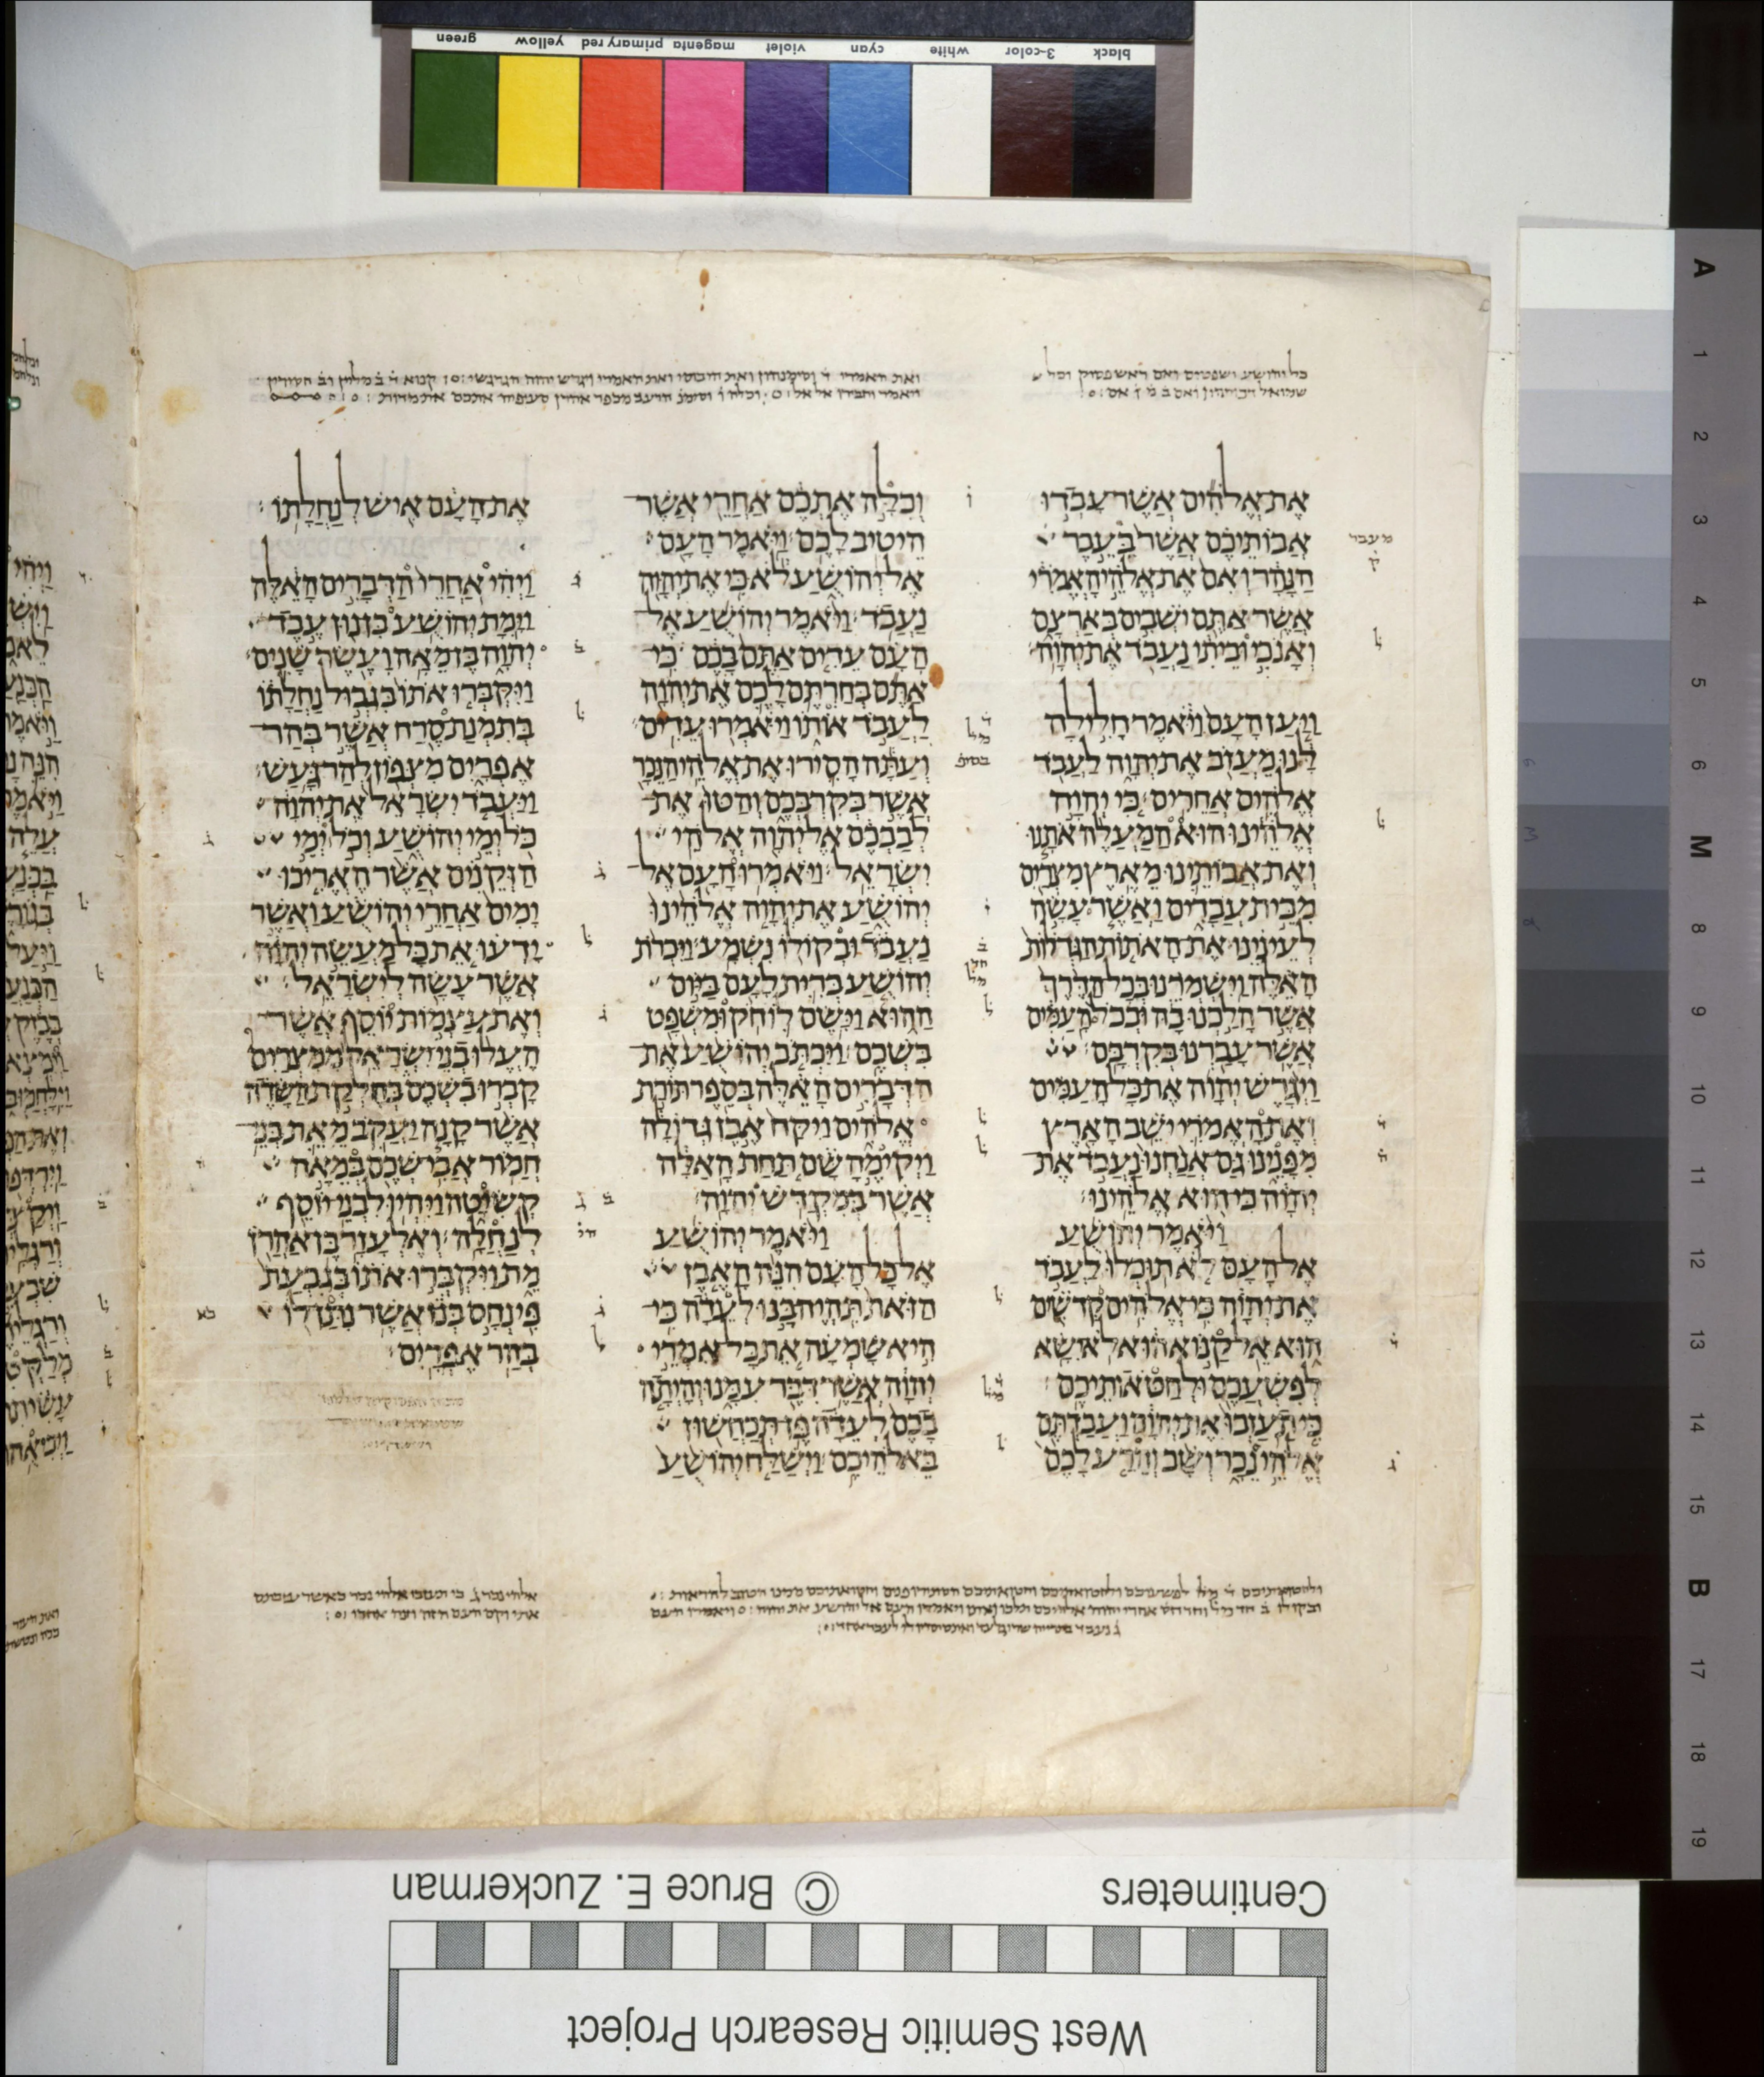 green yellow primary red magenta violet cyan white 3-color black
את אלהים אשר עבדו
אבותיכם אשר בעבר
הנהר ואם את אלהי האמרי
אשר אתם ישבים בארצם
ואנכי וביתי נעבד את יהוה׃
ויען העם ויאמר חלילה
לנו מעזב את יהוה לעבד
אלהים אחרים׃ כי יהוה
אלהינו הוא המעלה אתנו
ואת אבותינו מארץ מצרים
מבית עבדים ואשר עשה
לעינינו את האתות הגדלות
האלה וישמרנו בכל הדרך
אשר הלכנו בה ובכל העמים
אשר עברנו בקרבם׃
ויגרש יהוה את כל העמים
ואת האמרי ישב הארץ
מפנינו גם אנחנו נעבד את
יהוה כי הוא אלהינו׃
ויאמר יהושע
אל העם לא תוכלו לעבד
את יהוה כי אלהים קדשים
הוא אל קנוא הוא לא ישא
לפשעכם ולחטאותיכם׃
כי תעזבו את יהוה ועבדתם
אלהי נכר ושב והרע לכם
וכלה אתכם אחרי אשר
היטיב לכם׃ ויאמר העם
אל יהושע לא כי את יהוה
נעבד׃ ויאמר יהושע אל
העם עדים אתם בכם כי
אתם בחרתם לכם את יהוה
לעבד אותו ויאמרו עדים׃
ועתה הסירו את אלהי הנכר
אשר בקרבכם והטו את
לבבכם אל יהוה אלהי
ישראל׃ ויאמרו העם אל
יהושע את יהוה אלהינו
נעבד ובקולו נשמע׃ ויכרת
יהושע ברית לעם ביום
ההוא וישם לו חק ומשפט
בשכם׃ ויכתב יהושע את
הדברים האלה בספר תורת
אלהים ויקח אבן גדולה
ויקימה שם תחת האלה
אשר במקדש יהוה׃
ויאמר יהושע
אל כל העם הנה האבן
הזאת תהיה בנו לעדה כי
היא שמעה את כל אמרי
יהוה אשר דבר עמנו והיתה
בכם לעדה פן תכחשון
באלהיכם׃ וישלח יהושע
את העם איש לנחלתו׃
ויהי אחרי הדברים האלה
וימת יהושע בן נון עבד
יהוה בן מאה ועשר שנים׃
ויקברו אתו בגבול נחלתו
בתמנת סרח אשר בהר
אפרים מצפון להר געש׃
ויעבד ישראל את יהוה
כל ימי יהושע וכל ימי
הזקנים אשר האריכו
ימים אחרי יהושע ואשר
ידעו את כל מעשה יהוה
אשר עשה לישראל׃
ואת עצמות יוסף אשר
העלו בני ישראל ממצרים
קברו בשכם בחלקת השדה
אשר קנה יעקב מאת בני
חמור אבי שכם במאה
קשיטה ויהיו לבני יוסף
לנחלה׃ ואלעזר בן אהרן
מת ויקברו אתו בגבעת
פינחס בנו אשר נתן לו
בהר אפרים׃
A 1 2 3 4 5 6 M 8 9 10 11 12 13 14 15 B 17 18 19
Centimeters © Bruce E. Zuckerman
West Semitic Research Project